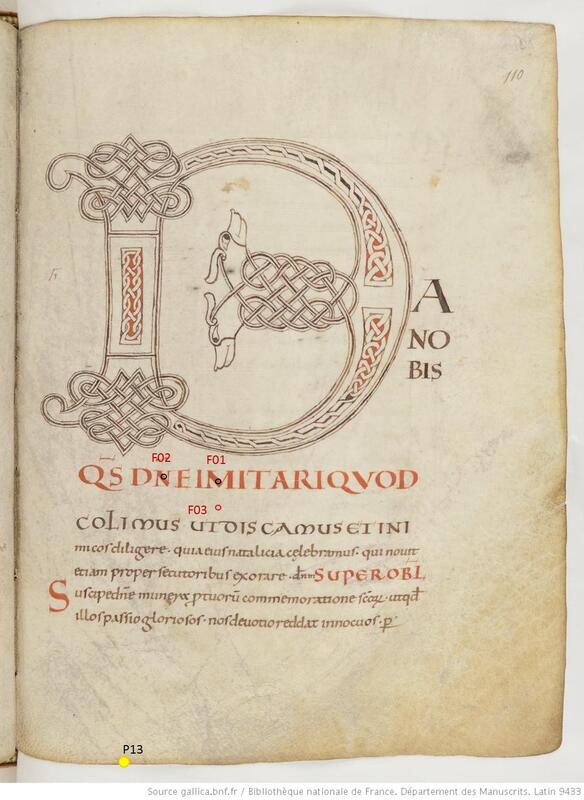 110
D
A
NO
BIS
F02
F01
QS DNE IMITARI QVOD
F03
COLIMUS UT DISCAMUS ET INI
micos diligere · quia eius natalicia cęlebramus · qui novit
etiam pro persecutoribus exorare · dnm SUPER OBL
Suscipe dne munera ꝓ tuorū commemoratione scōꝝ · ut qd
illos passio gloriosos · nos devotio reddat innocuos · p
P13
Source gallica.bnf.fr / Bibliothèque nationale de France. Département des Manuscrits. Latin 9433